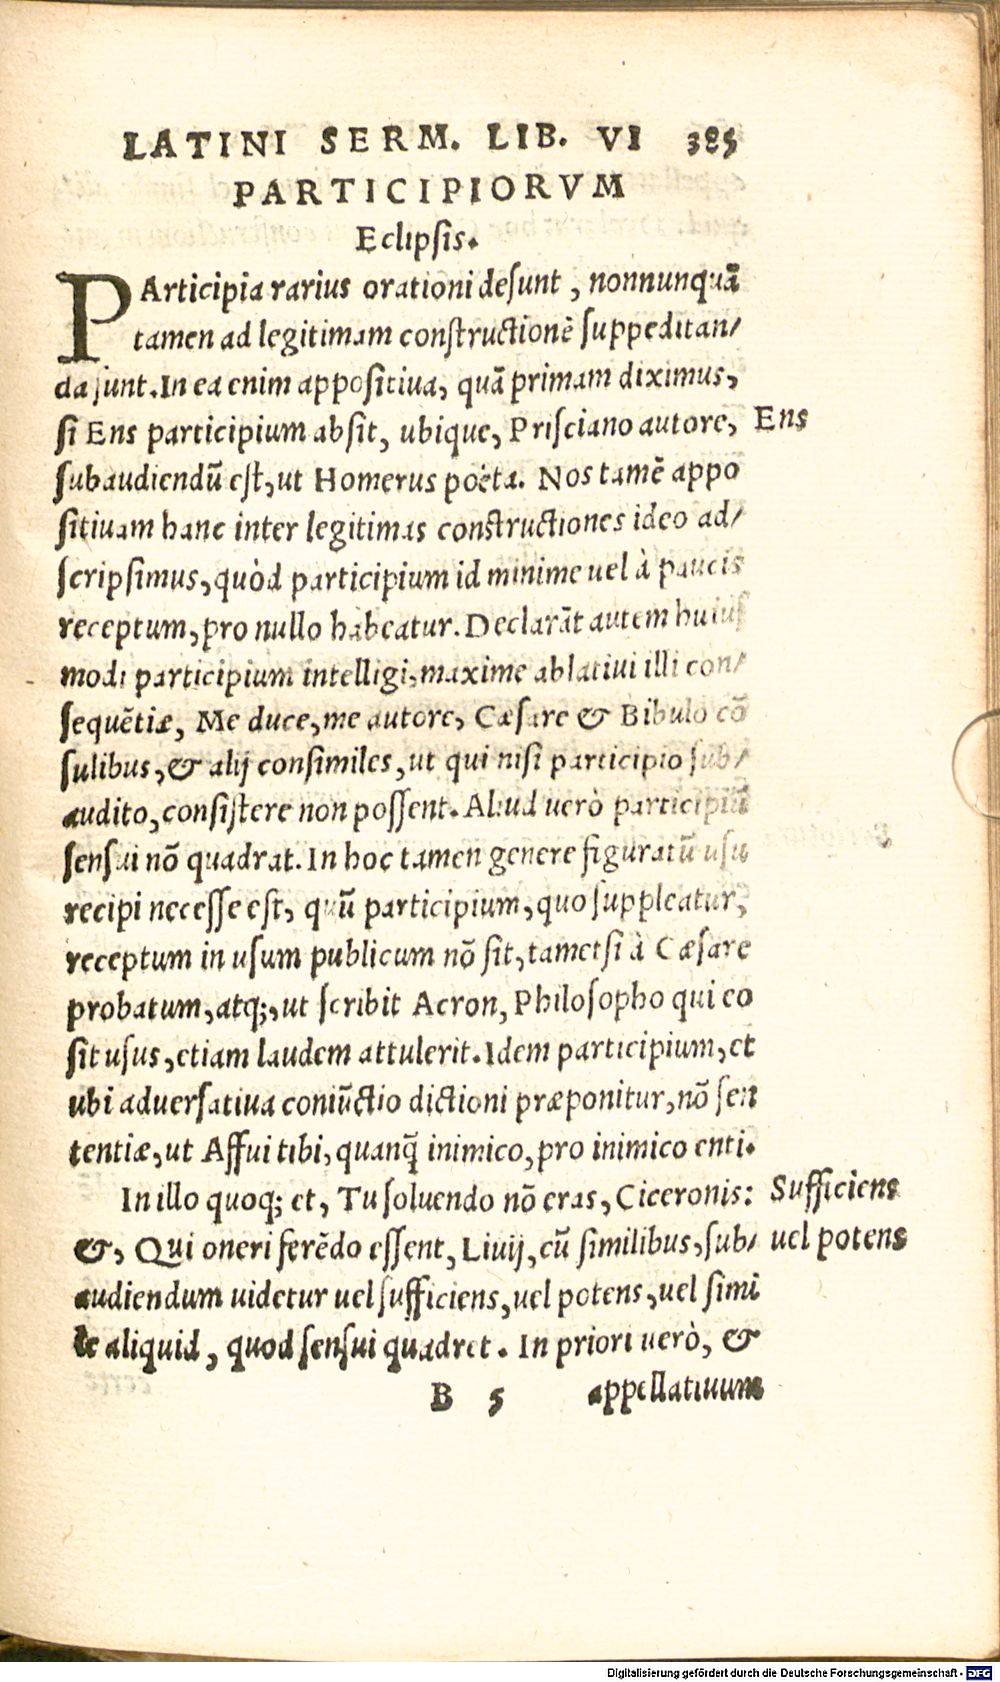 LATINI SERM. LIB. VI 385
PARTICIPIORVM
Eclipsis.
PArticipia rarius orationi desunt, nonnunquā
tamen ad legitimam constructionē suppeditan/
da sunt. In ea enim appositiua, quā primam diximus,
si Ens participium absit, ubique, Prisciano autore, Ens
subaudiendū est, ut Homerus poëta. Nos tamē appo
sitiuam hanc inter legitimas constructiones ideo ad/
scripsimus, quòd participium id minime uel à paucis
receptum, pro nullo habeatur. Declarāt autem huius
modi participium intelligi, maxime ablatiui illi con/
sequētiæ, Me duce, me autore, Cæsare & Bibulo cō
sulibus, & alij consimiles, ut qui nisi participio sub/
audito, consistere non possent. Aliud uerò participiū
sensui nō quadrat. In hoc tamen genere figuratū usu
recipi necesse est, quū participium, quo suppleatur,
receptum in usum publicum nō sit, tametsi à Cæsare
probatum, atq;, ut scribit Acron, Philosopho qui eo
sit usus, etiam laudem attulerit. Idem participium, et
ubi aduersatiua coniūctio dictioni præponitur, nō sen
tentiæ, ut Affui tibi, quanq̄ inimico, pro inimico enti.
In illo quoq; et, Tu soluendo nō eras, Ciceronis: Sufficiens
&, Qui oneri ferēdo essent, Liuij, cū similibus, sub/ uel potens
audiendum uidetur uel sufficiens, uel potens, uel simi
le aliquid, quod sensui quadret. In priori uerò, &
B 5 appellatiuum
Digitalisierung gefördert durch die Deutsche Forschungsgemeinschaft - DFG